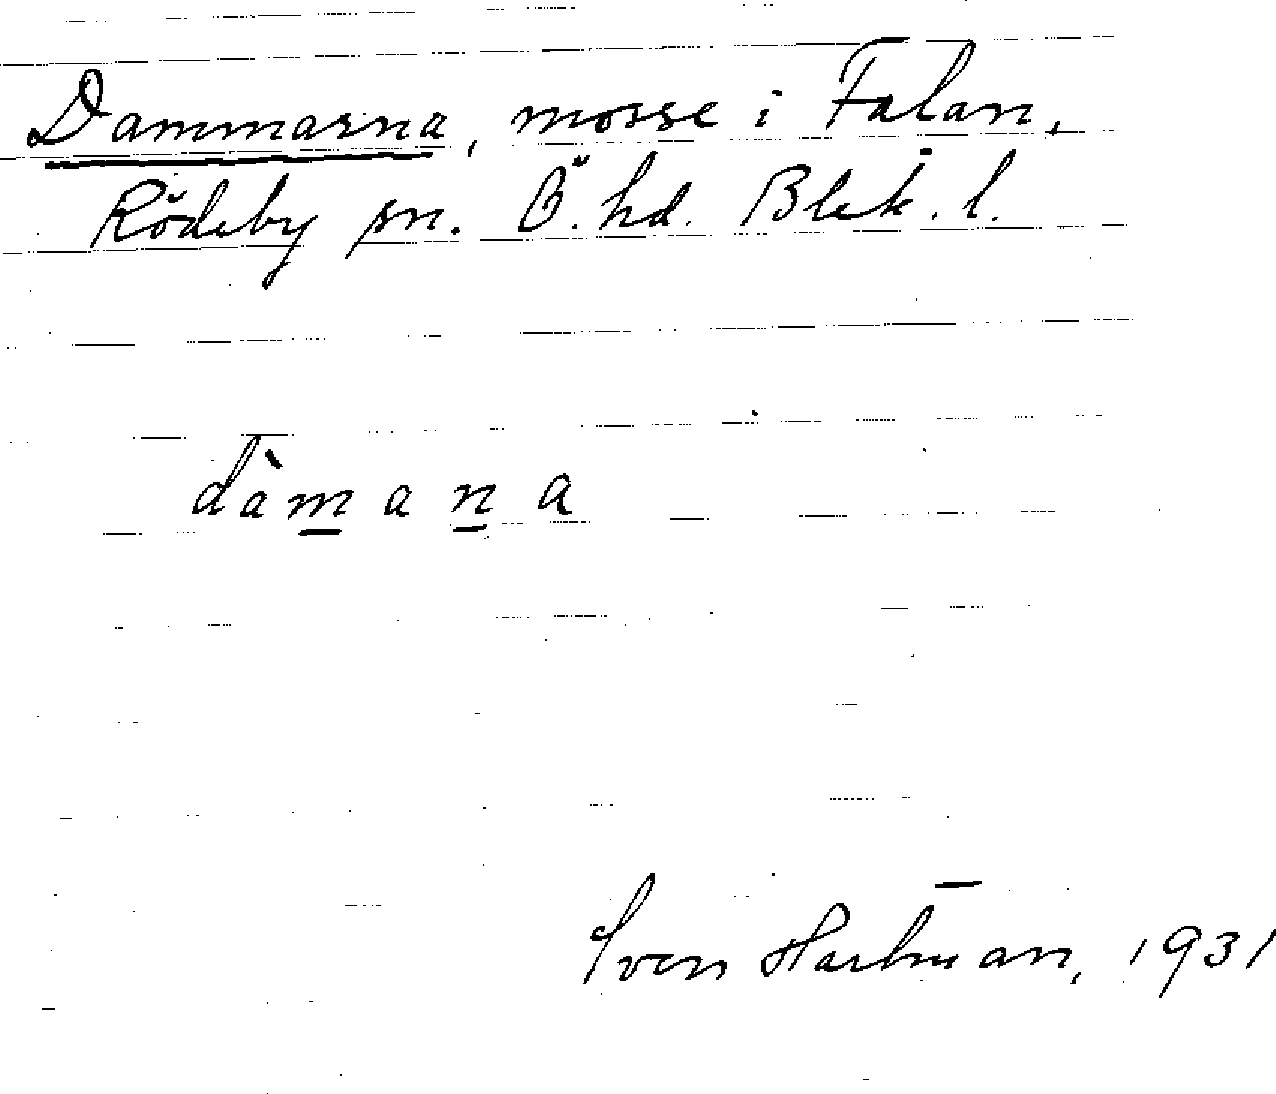 Dammarna, mosse i Falan,
Rödeby sn. Ö. hd. Blek. l.
dàm̲an̲a
Sven Hartman, 1931